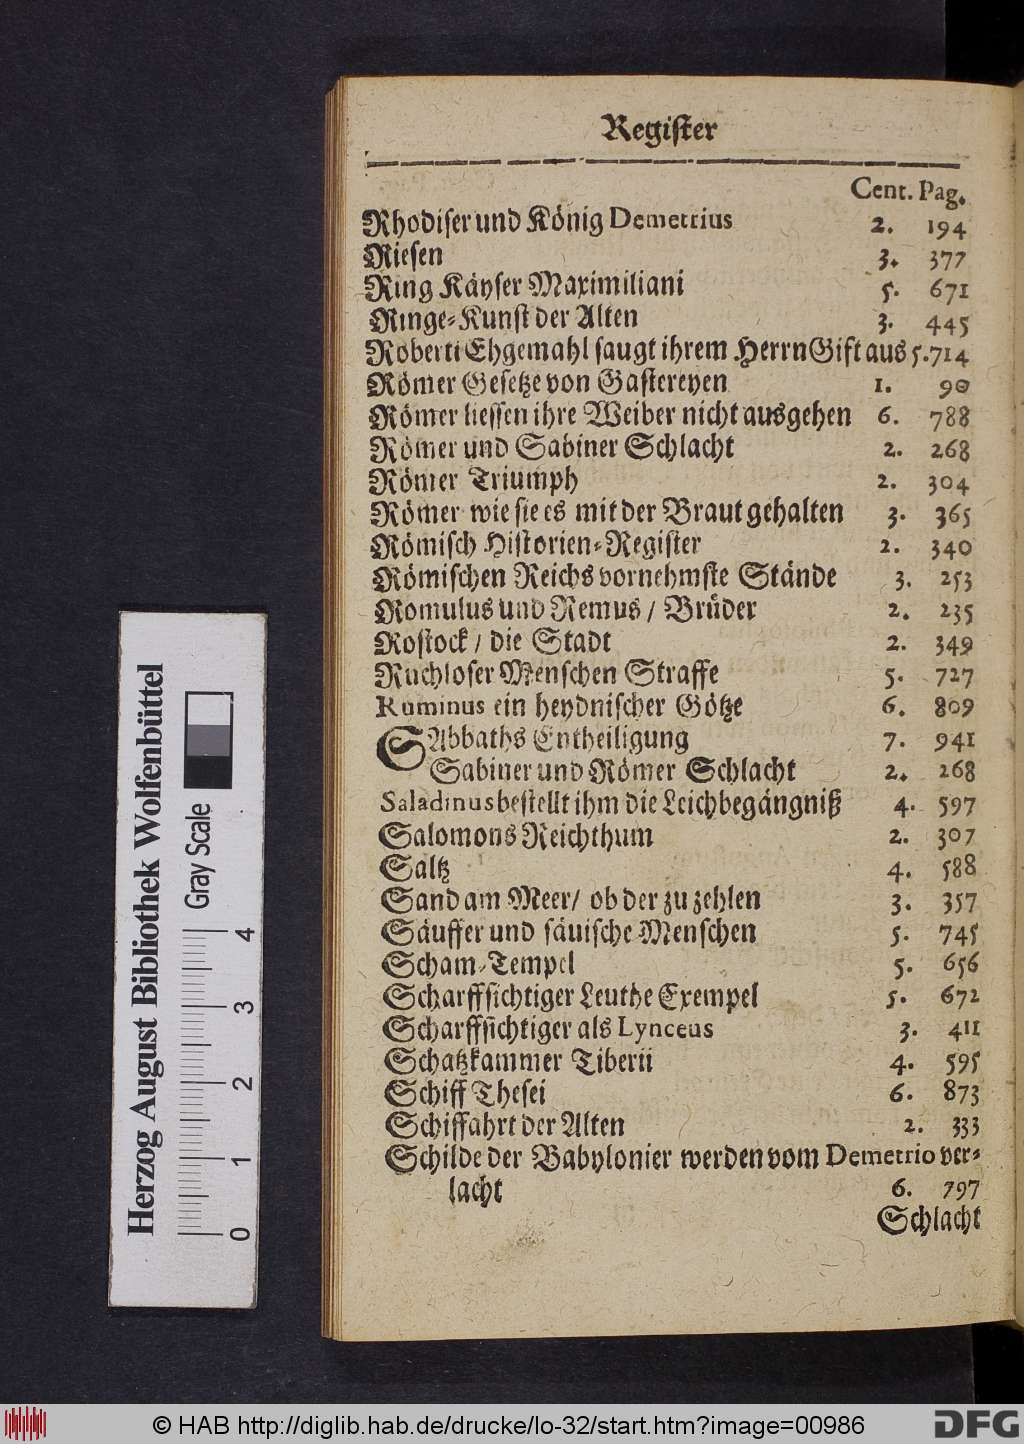 Register
Cent. Pag.
Rhodiser und König Demetrius 2. 194
Riesen 3. 377
Ring Käyser Maximiliani 5. 671
Ringe-Kunst der Alten 3. 445
Roberti Ehgemahl saugt ihrem Herrn Gift aus 5. 714
Römer Gesetze von Gastereyen 1. 90
Römer liessen ihre Weiber nicht ausgehen 6. 788
Römer und Sabiner Schlacht 2. 268
Römer Triumph 2. 304
Römer wie sie es mit der Braut gehalten 3. 365
Römisch Historien-Register 2. 340
Römischen Reichs vornehmste Stände 3. 253
Romulus und Remus / Brüder 2. 235
Rostock / die Stadt 2. 349
Ruchloser Menschen Straffe 5. 727
Ruminus ein heydnischer Götze 6. 809
SAbbaths Entheiligung 7. 941
Sabiner und Römer Schlacht 2. 268
Saladinus bestellt ihm die Leichbegängniß 4. 597
Salomons Reichthum 2. 307
Saltz 4. 588
Sand am Meer / ob der zu zehlen 3. 357
Säuffer und säuische Menschen 5. 745
Scham-Tempel 5. 656
Scharffsichtiger Leuthe Exempel 5. 672
Scharffsichtiger als Lynceus 3. 411
Schatzkammer Tiberii 4. 595
Schiff Thesei 6. 873
Schiffahrt der Alten 2. 333
Schilde der Babylonier werden vom Demetrio ver-
lacht 6. 797
Schlacht
Herzog August Bibliothek Wolfenbüttel
Gray Scale
0 1 2 3 4
© HAB http://diglib.hab.de/drucke/lo-32/start.htm?image=00986
DFG